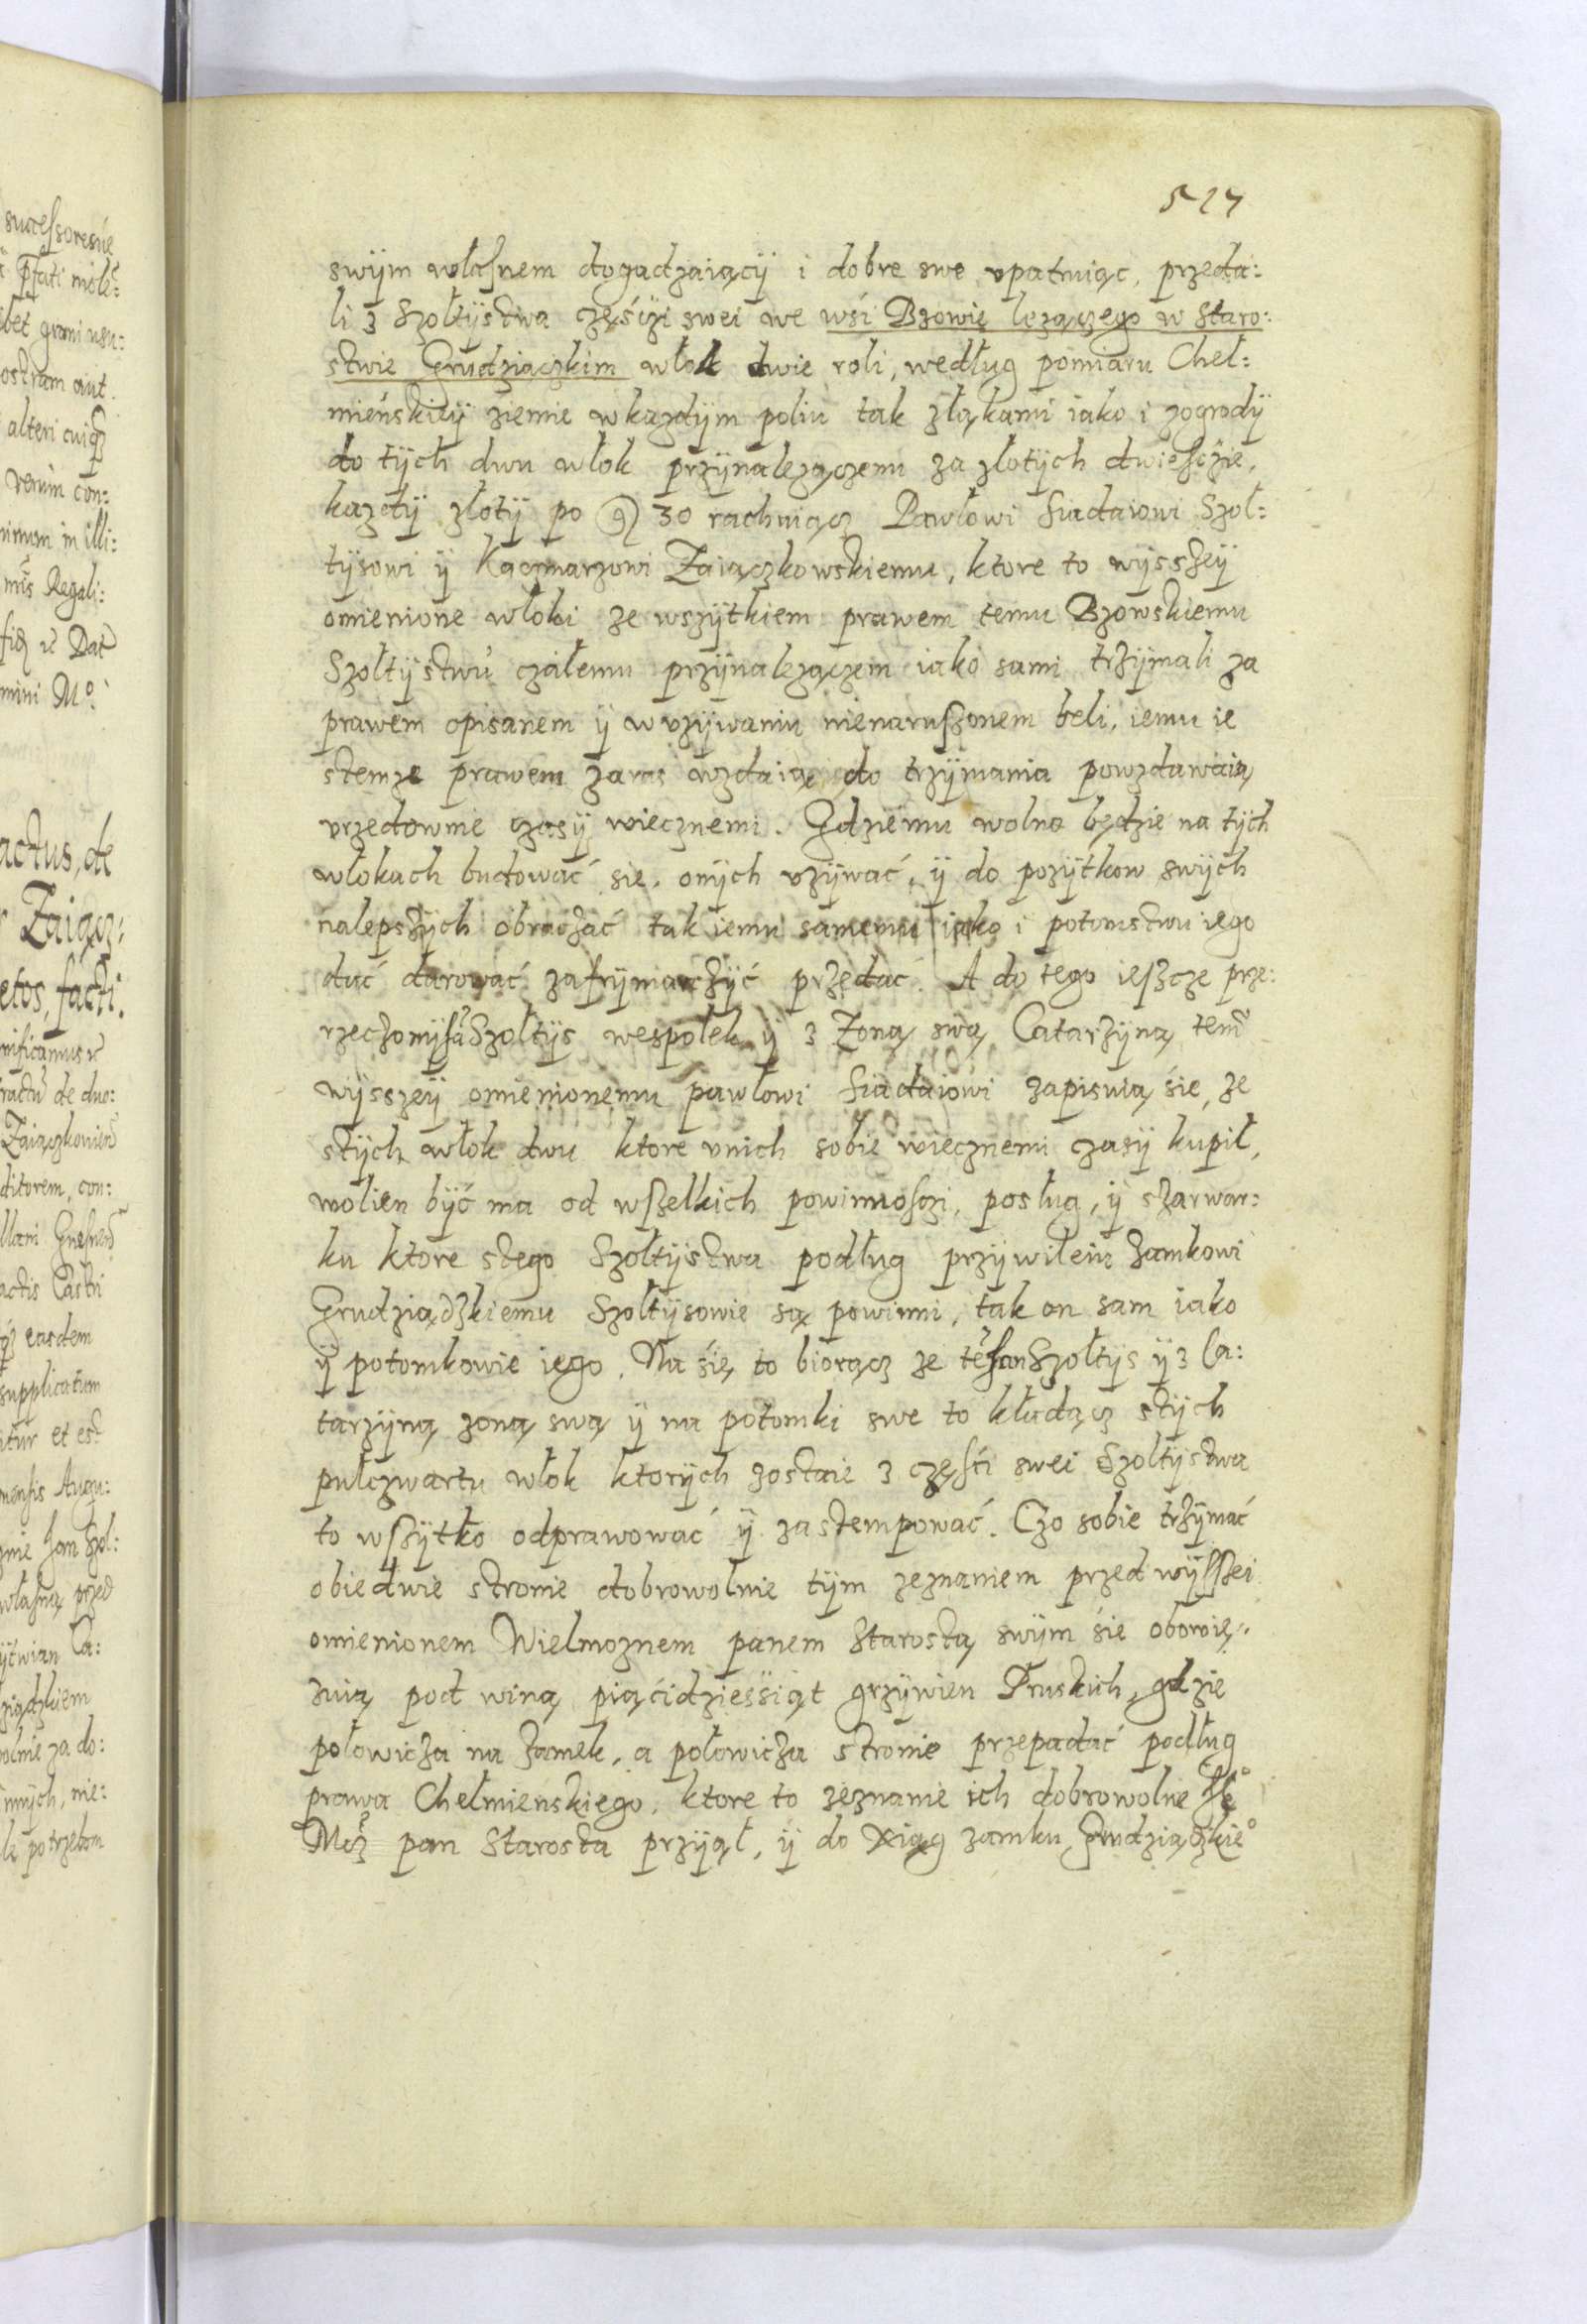 517
swÿm własnem dogadzaiącÿ i dobre swe upatruiąc, przeda:
li z Szołtÿstwa częśćżi swei we wśi Bzowię lezączego w Staro:
stwie Grudziączkim włok dwie roli, według pomiaru Cheł:
mieńskiÿ ziemie w kazdÿm poliu tak złąkami iako i zogrodÿ
do tÿch dwu włok przÿnalezączemu za złotÿch dwieśćżie,
kazdÿ złotÿ po g 30 rachuiącz Pawłowi Siadaiowi Szoł:
tÿsowi ÿ Kaczmarzowi Zaiączkowskiemu, ktore to wÿsszeÿ
omienione włoki ze wszÿtkiem prawem temu Bzowskiemu
Szołtÿstwu czałemu przÿnalezączem iako sami trzÿmali za
prawem opisanem ÿ w vzÿwaniu nienaruszonem beli, iemu ie
stemze prawem zaras wzdaiąc do trzÿmania powzdawaią
vrzedownie czasÿ wiecznemi. Gdziemu wolno będzie na tÿch
włokach budować sie, onÿch vzÿwać, ÿ do pozÿtkow swÿch
nalepszÿch obraczać tak iemu samemu iako i potomstwu iego
dać darować zafrÿmarczÿć przedać. A do tego ieszcze prze:
rzeczonÿ Jan Szołtÿs wespołek ÿ z Zoną swą Catarzÿną tem
wÿsszeÿ omienionemu pawłowi Siadaiowi zapisuią śie, ze
stÿch włok dwu ktore unich sobie wiecznemi czasÿ kupił,
wolien bÿć ma od wszelkich powinnosczi, posług, ÿ szarwar:
ku ktore stego Szołtÿstwa podług przÿwileiu Zamkowi
Grudziądzkiemu Szołtÿsowie są powinni, tak on sam iako
ÿ potomkowie iego. Na śię to biorącz ze te Jan Szołtÿs ÿ z Ca:
tarzÿną zoną swą ÿ na potomki swe to kładącz stÿch
pułczwartu włok ktorÿch zostaie z częśći swei Szołtÿstwa
to wszÿtko odprawować ÿ zastempować. Czo sobie trzÿmać
obiedwie stronie dobrowolnie tÿm zeznaniem przed wÿsszei
omienionem Wielmoznem panem Starostą swÿm śie obowię:
zuią pod winą piąćidzieśsiąt grzÿwien Pruskich, gdzie
połowicza na Zamek, a połowicza stronie przepadać podług
prawa Chełmienskiego, ktore to zeznanie ich dobrowolne Je°
Mcz pan Starosta przÿiął, ÿ do Xiąg zamku Grudziączkie°